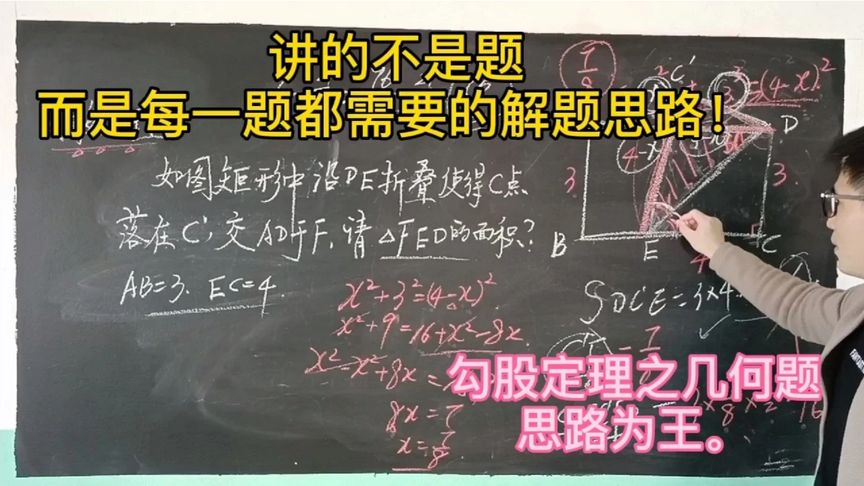 讲的不是题
而是每一题都需要的解题思路！
如图矩形中沿DE折叠使得C点
落在C′，交AD于F，请△FED的面积？
AB=3. EC=4.
x²+3²=(4-x)²
x²+9=16+x²-8x
x²-x²+8x=
8x=7
x=7/8
7/8
C′
(4-x)²
4-x
D
3
3.
B
E
C
4
SDC′E=3×4
勾股定理之几何题
思路为王。